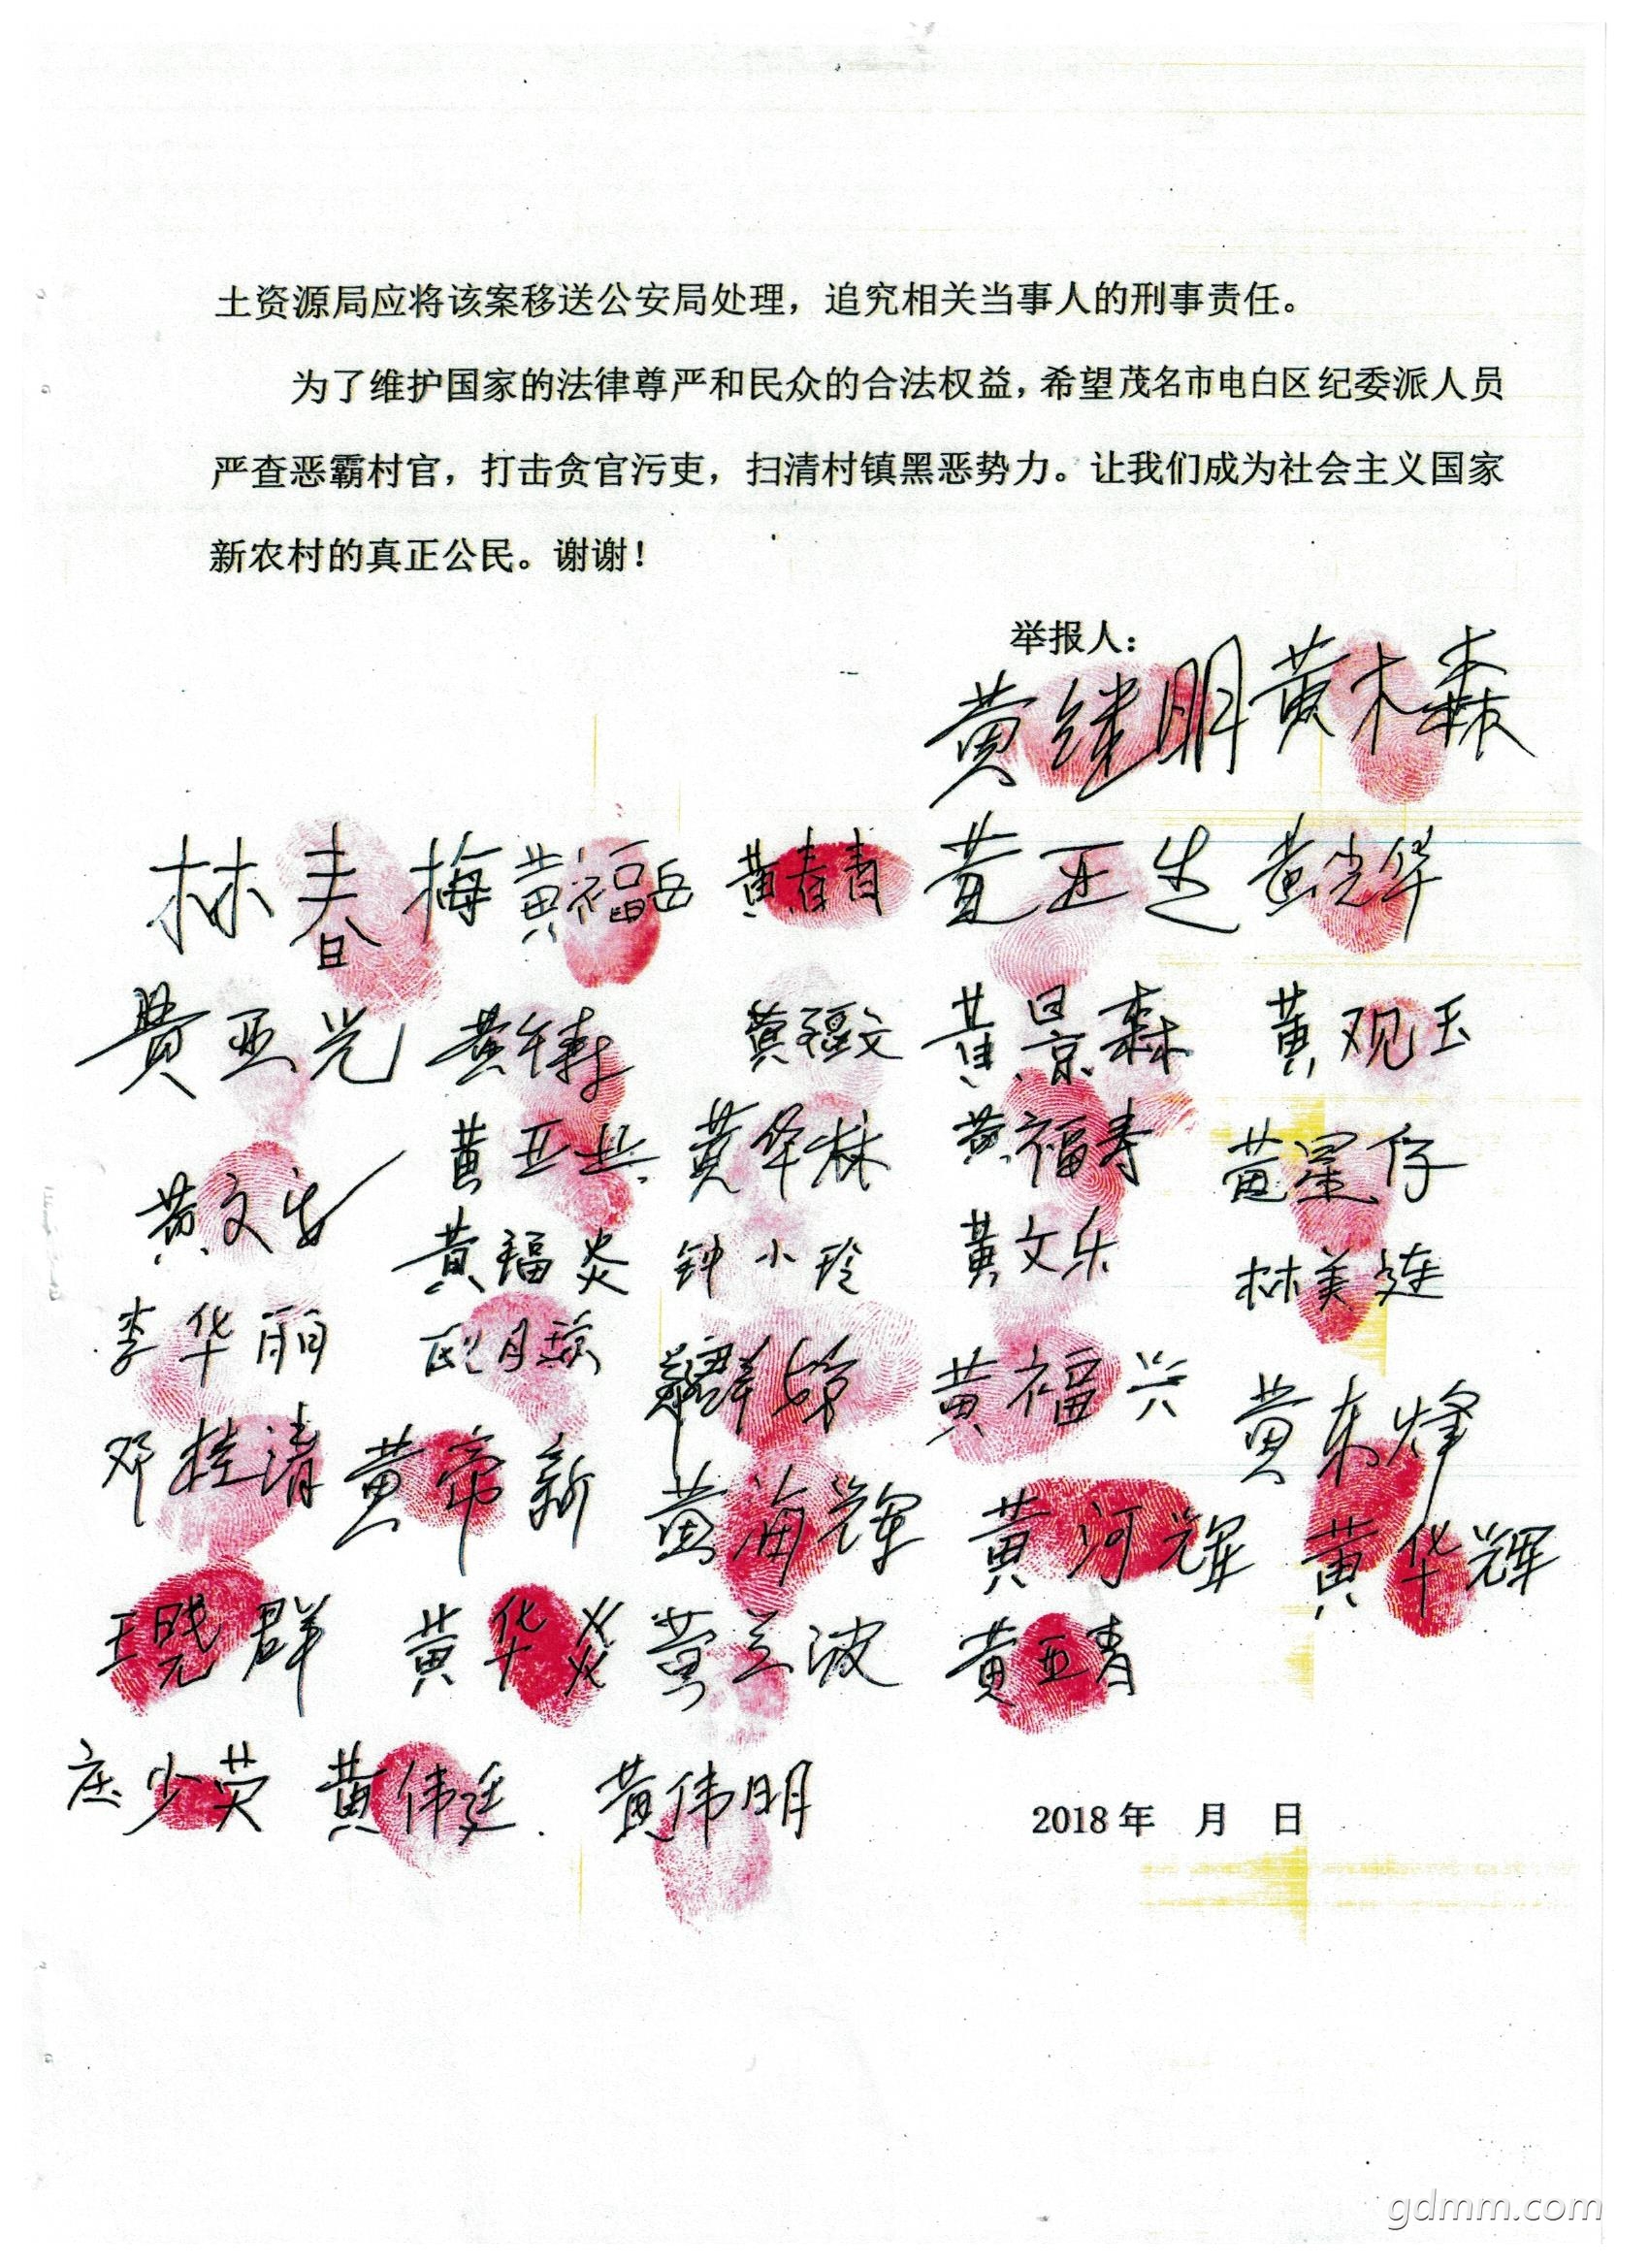 土资源局应将该案移送公安局处理，追究相关当事人的刑事责任。
为了维护国家的法律尊严和民众的合法权益，希望茂名市电白区纪委派人员
严查恶霸村官，打击贪官污吏，扫清村镇黑恶势力。让我们成为社会主义国家
新农村的真正公民。谢谢！
举报人：
黄继明 黄木森
林春梅 黄福岳 黄春青 黄亚生 黄光华
黄亚光 黄文 黄景森 黄观玉
黄亚兴 黄华林 黄福寿 黄星仔
黄文安
黄福炎 钟小玲 黄文乐 林美连
李华丽 区月琼 黄福兴
邓桂清 黄帝新 黄海辉 黄河辉 黄东烽
黄华辉
王晓群 黄华炎 黄兰波 黄亚青
庄少英 黄伟廷 黄伟明
2018年 月 日
gdmm.com